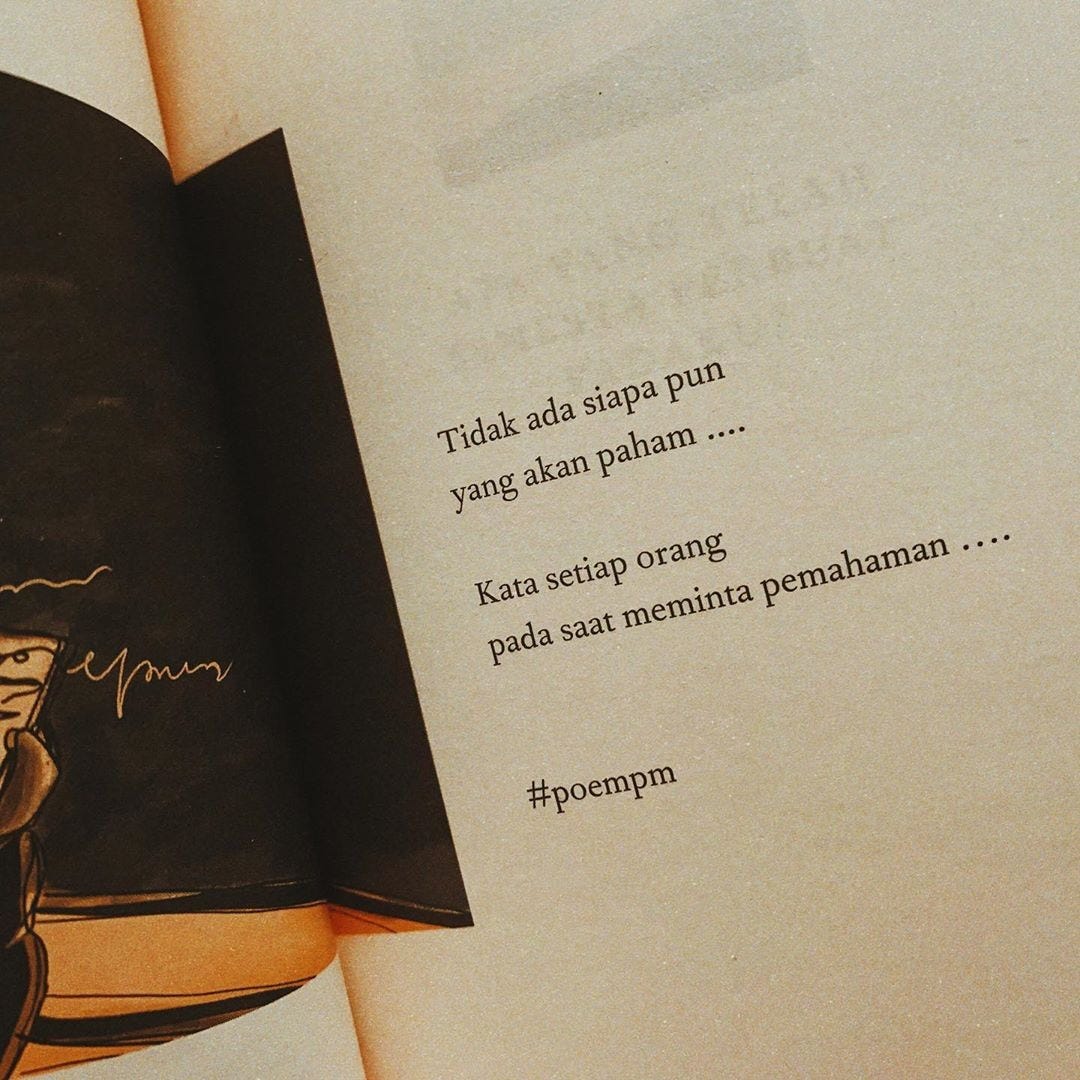 Tidak ada siapa pun
yang akan paham ....
Kata setiap orang
pada saat meminta pemahaman ....
#poempm